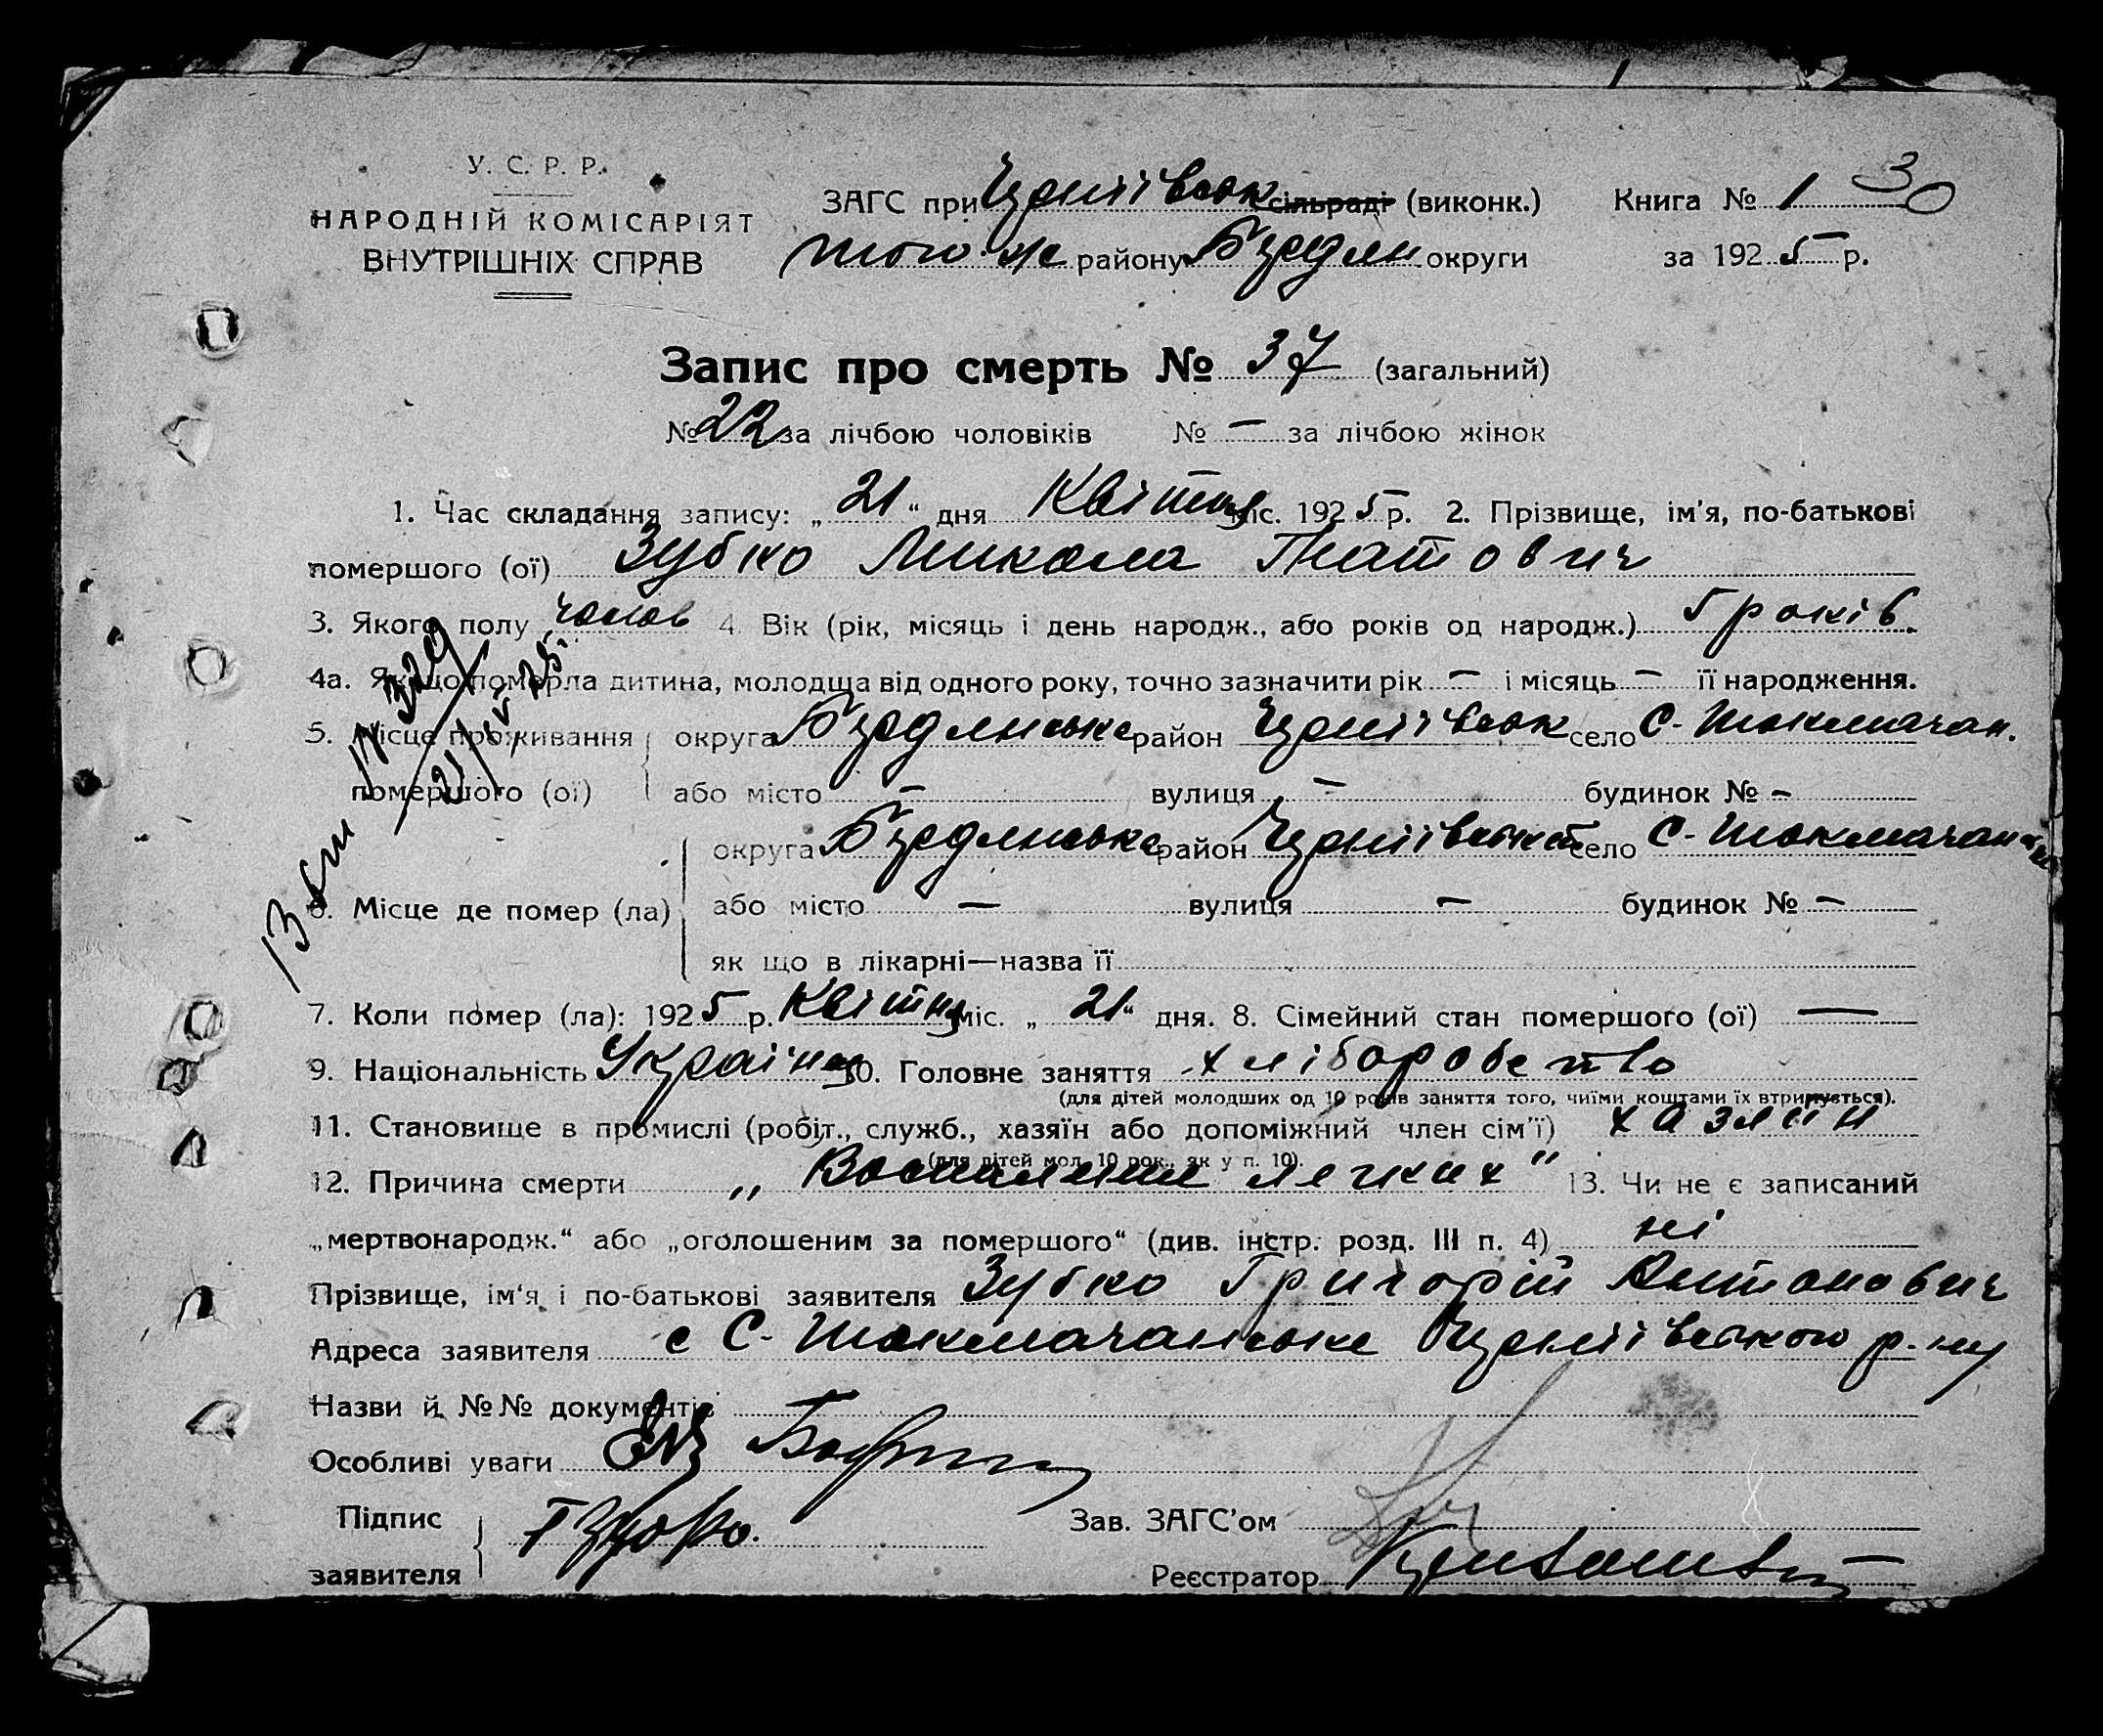 30
У. С. Р. Р.
НАРОДНІЙ КОМІСАРІЯТ
ВНУТРІШНІХ СПРАВ
ЗАГС при Чернігівськ сільраді (виконк.)
того ж району Бердян округи
Книга № 1
за 1925 р.
Запис про смерть № 37 (загальний)
№ 22 за лічбою чоловіків № — за лічбою жінок
1. Час складання запису: „21“ дня Квітня міс. 1925 р. 2. Прізвище, ім'я, по-батькові
помершого (ої) Зубко Микола Гнатович
3. Якого полу чолов 4. Вік (рік, місяць і день народж., або років од народж.) 5 років.
4а. Якщо померла дитина, молодща від одного року, точно зазначити рік — і місяць — її народження.
5. Місце проживання округа Бердянська район Чернігівськ село С-Токмачан.
помершого (ої) або місто — вулиця — будинок № —
округа Бердянська район Чернігівськ село С-Токмачанськ
6. Місце де помер (ла) або місто — вулиця — будинок № —
як що в лікарні—назва її
7. Коли помер (ла): 1925 р. Квітня міс. „21“ дня. 8. Сімейний стан помершого (ої) —
9. Національність Україн 10. Головне заняття хліборобство
(для дітей молодших од 10 років заняття того, чиїми коштами їх втримується).
11. Становище в промислі (робіт., служб., хазяїн або допоміжний член сім'ї) хазяін
(для дітей мол. 10 рок., як у п. 10).
12. Причина смерти „Воспаление легких" 13. Чи не є записаний
„мертвонародж.“ або „оголошеним за помершого“ (див. інстр. розд. III п. 4) ні
Прізвище, ім'я і по-батькові заявителя Зубко Григорій Антонович
Адреса заявителя с С-Токмачанське Чернігівського р-ну
Назви й №№ документів
Особливі уваги
Підпис
заявителя Г Зубко.
Зав. ЗАГС'ом
Реєстратор